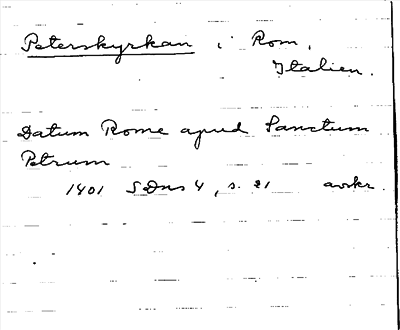 Peterskyrkan i Rom,
Italien.
Datum Rome apud Sanctum
Petrum
1401 SDns 4, s. 21 avskr.